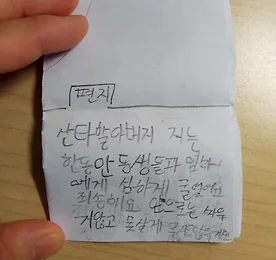 편지
산타할아버지 저는
한동안 동생들과 엄마
에게 심하게 굴었어요
죄송해요 앞으로는 싸우
지않고 못살게